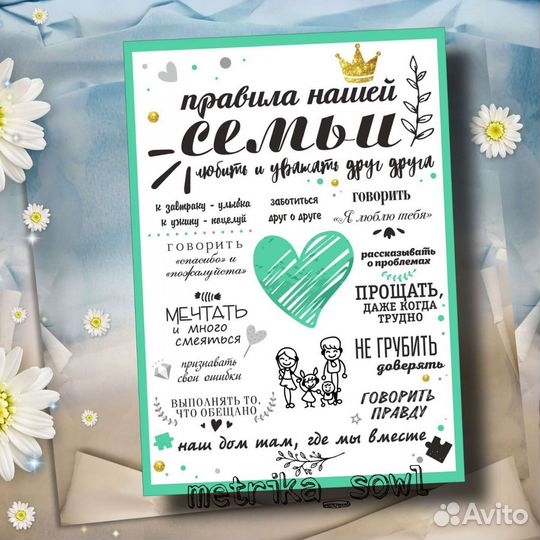 правила нашей
семьи
любить и уважать друг друга
к завтраку - улыбка
к ужину - поцелуй
заботиться
друг о друге
говорить
«Я люблю тебя»
говорить
«спасибо» и
«пожалуйста»
рассказывать
о проблемах
МЕЧТАТЬ
и много
смеяться
ПРОЩАТЬ,
ДАЖЕ КОГДА
ТРУДНО
признавать
свои ошибки
НЕ ГРУБИТЬ
доверять
ВЫПОЛНЯТЬ ТО,
ЧТО ОБЕЩАНО
ГОВОРИТЬ
ПРАВДУ
наш дом там, где мы вместе
metrika_sowl
Avito